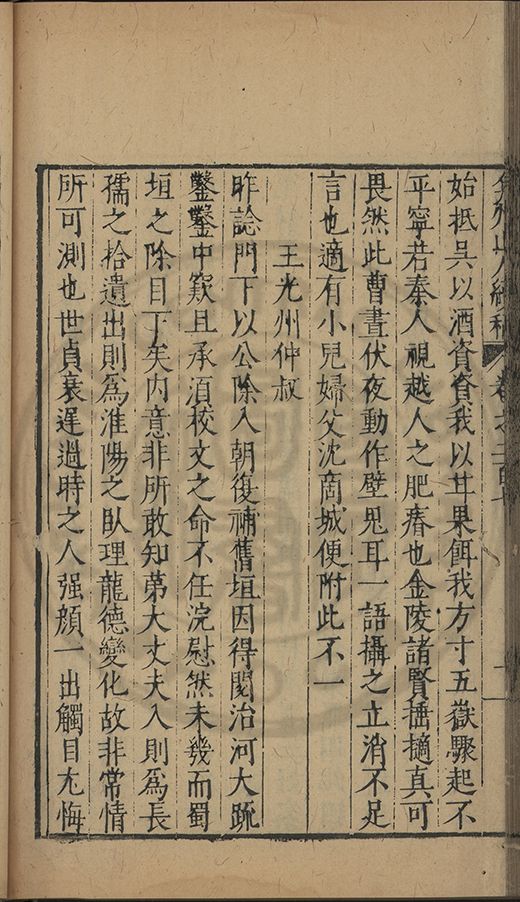 弇州山人續稿 卷之二百 十一
始抵吳以酒資貧我以甘果餌我方寸五嶽驟起不
平寧若秦人視越人之肥瘠也金陵諸賢搔擿真可
畏然此曹晝伏夜動作壁鬼耳一語攝之立消不足
言也適有小兒婦父沈商城便附此不一
王光州仲叔
昨諗門下以公除入朝復補舊垣因得閱治河大䟽
鑿鑿中窾且承湏校文之命不任浣慰然未幾而蜀
垣之除目下矣内意非所敢知苐大丈夫入則爲長
孺之拾遺出則爲淮陽之臥理龍德變化故非常情
所可測也世貞衰遲過時之人强顔一出觸目尤悔